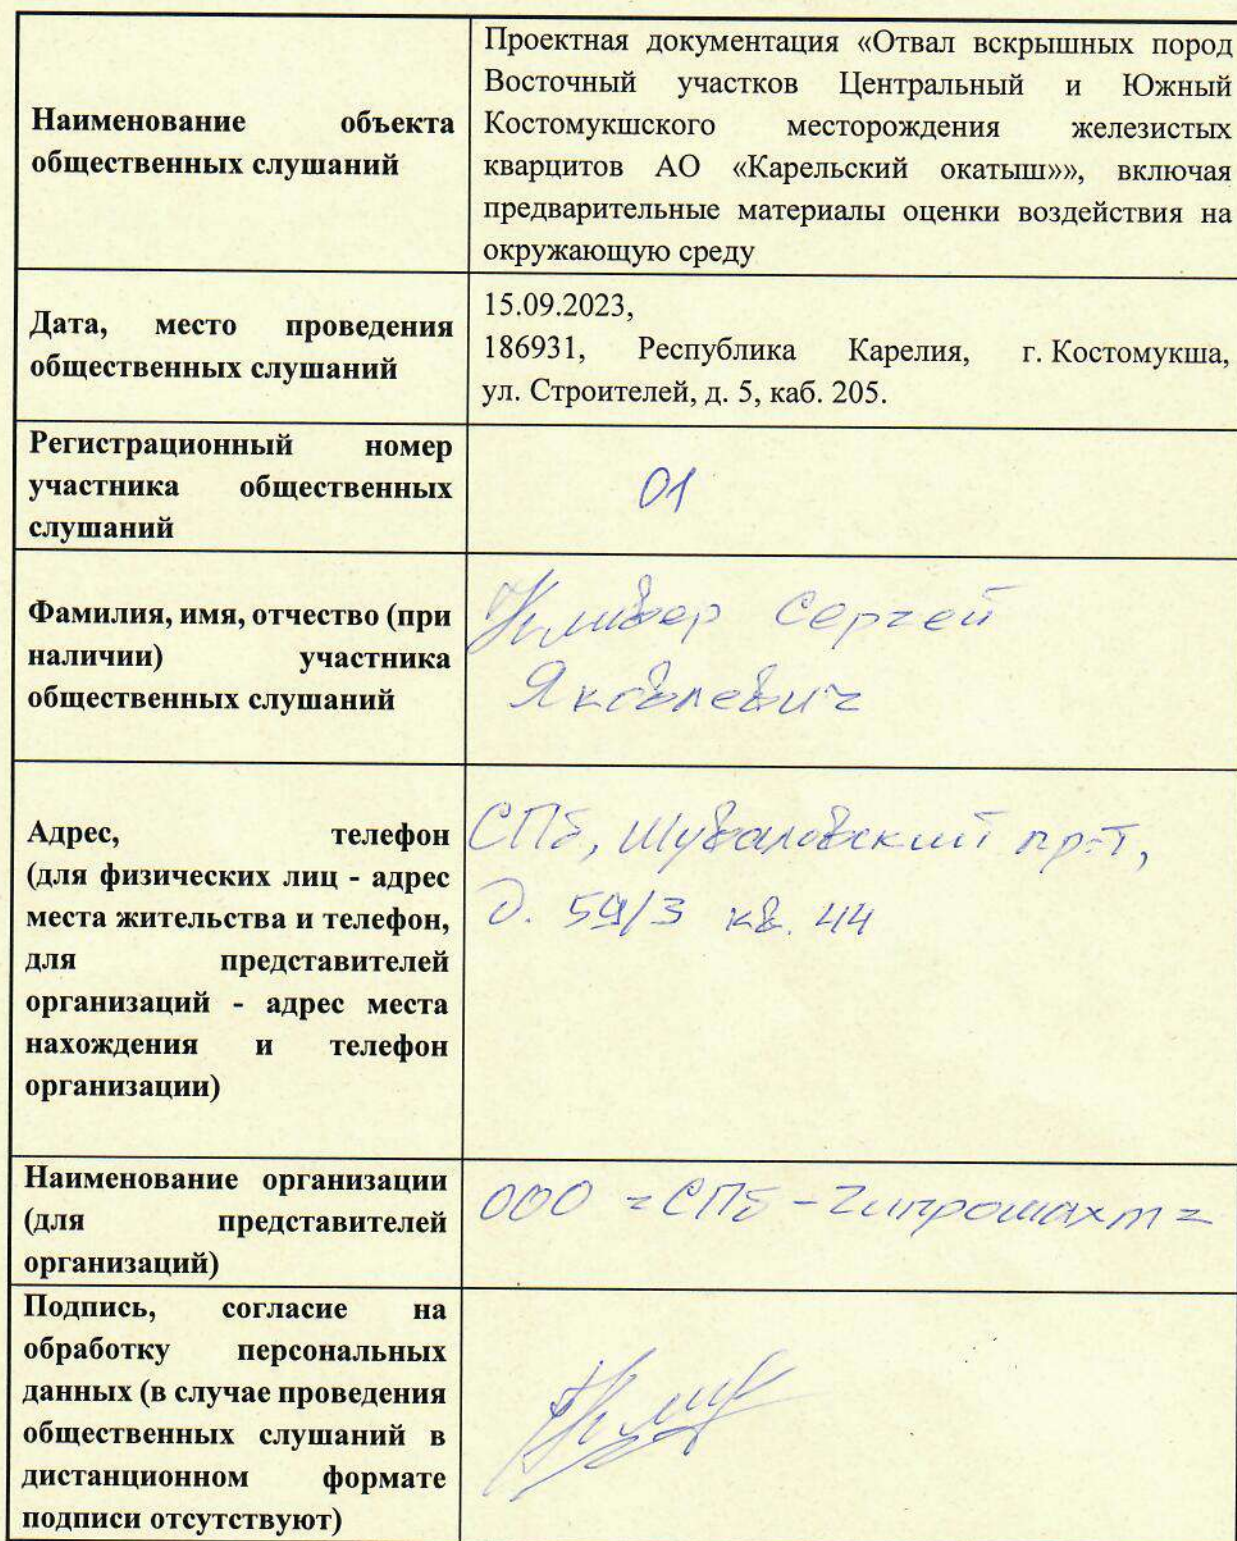 Наименование объекта
общественных слушаний
Проектная документация «Отвал вскрышных пород
Восточный участков Центральный и Южный
Костомукшского месторождения железистых
кварцитов АО «Карельский окатыш»», включая
предварительные материалы оценки воздействия на
окружающую среду
Дата, место проведения
общественных слушаний
15.09.2023,
186931, Республика Карелия, г. Костомукша,
ул. Строителей, д. 5, каб. 205.
Регистрационный номер
участника общественных
слушаний
01
Фамилия, имя, отчество (при
наличии) участника
общественных слушаний
Сергей
Яковлевич
Адрес, телефон
(для физических лиц - адрес
места жительства и телефон,
для представителей
организаций - адрес места
нахождения и телефон
организации)
СПб, Шуваловский пр-т,
д. 59/3 кв. 44
Наименование организации
(для представителей
организаций)
ООО "СПб-Гипрошахт"
Подпись, согласие на
обработку персональных
данных (в случае проведения
общественных слушаний в
дистанционном формате
подписи отсутствуют)